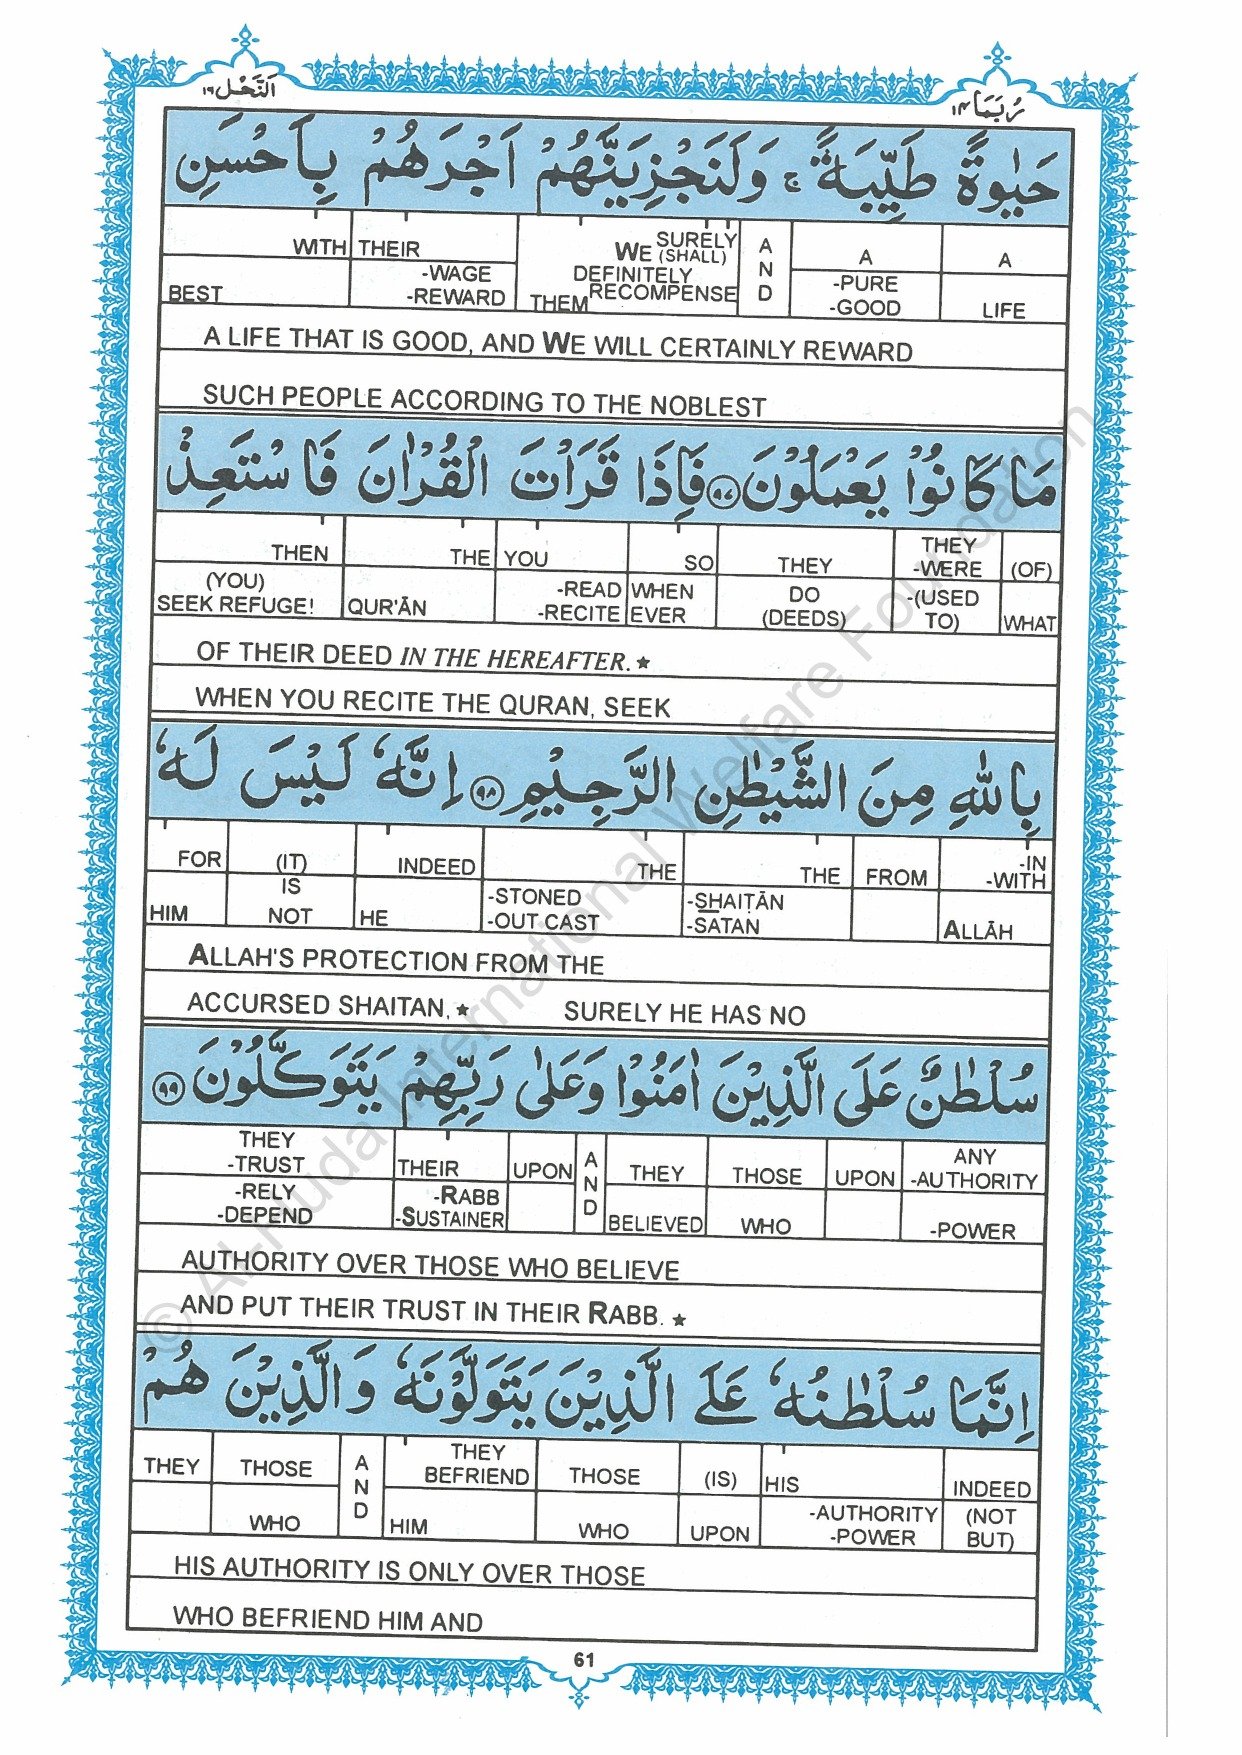 النَّحْل ١٦
رُبَمَا ١٤
حَيٰوةً طَيِّبَةً ۚ وَلَنَجْزِيَنَّهُمْ اَجْرَهُمْ بِاَحْسَنِ
WITH THEIR SURELY WE (SHALL) AND A A
BEST -WAGE -REWARD THEM DEFINITELY RECOMPENSE -PURE -GOOD LIFE
A LIFE THAT IS GOOD, AND WE WILL CERTAINLY REWARD
SUCH PEOPLE ACCORDING TO THE NOBLEST
مَا كَانُوْا يَعْمَلُوْنَ ٩٧ فَاِذَا قَرَاْتَ الْقُرْاٰنَ فَاسْتَعِذْ
THEN THE YOU SO THEY THEY -WERE (OF)
(YOU) SEEK REFUGE! QUR'ĀN -READ -RECITE WHEN EVER DO (DEEDS) -(USED TO) WHAT
OF THEIR DEED IN THE HEREAFTER. ★
WHEN YOU RECITE THE QURAN, SEEK
بِاللّٰهِ مِنَ الشَّيْطٰنِ الرَّجِيْمِ ٩٨ اِنَّهٗ لَيْسَ لَهٗ
FOR (IT) INDEED THE THE FROM -IN -WITH
HIM IS NOT HE -STONED -OUT CAST -SHAIṬĀN -SATAN ALLĀH
ALLAH'S PROTECTION FROM THE
ACCURSED SHAITAN, ★ SURELY HE HAS NO
سُلْطٰنٌ عَلَى الَّذِيْنَ اٰمَنُوْا وَعَلٰى رَبِّهِمْ يَتَوَكَّلُوْنَ ٩٩
THEY -TRUST THEIR UPON AND THEY THOSE UPON ANY -AUTHORITY
-RELY -DEPEND -RABB -SUSTAINER BELIEVED WHO -POWER
AUTHORITY OVER THOSE WHO BELIEVE
AND PUT THEIR TRUST IN THEIR RABB. ★
اِنَّمَا سُلْطٰنُهٗ عَلَى الَّذِيْنَ يَتَوَلَّوْنَهٗ وَالَّذِيْنَ هُمْ
THEY THOSE AND THEY BEFRIEND THOSE (IS) HIS INDEED
WHO HIM WHO UPON -AUTHORITY -POWER (NOT BUT)
HIS AUTHORITY IS ONLY OVER THOSE
WHO BEFRIEND HIM AND
61
© Al-Huda International Welfare Foundation